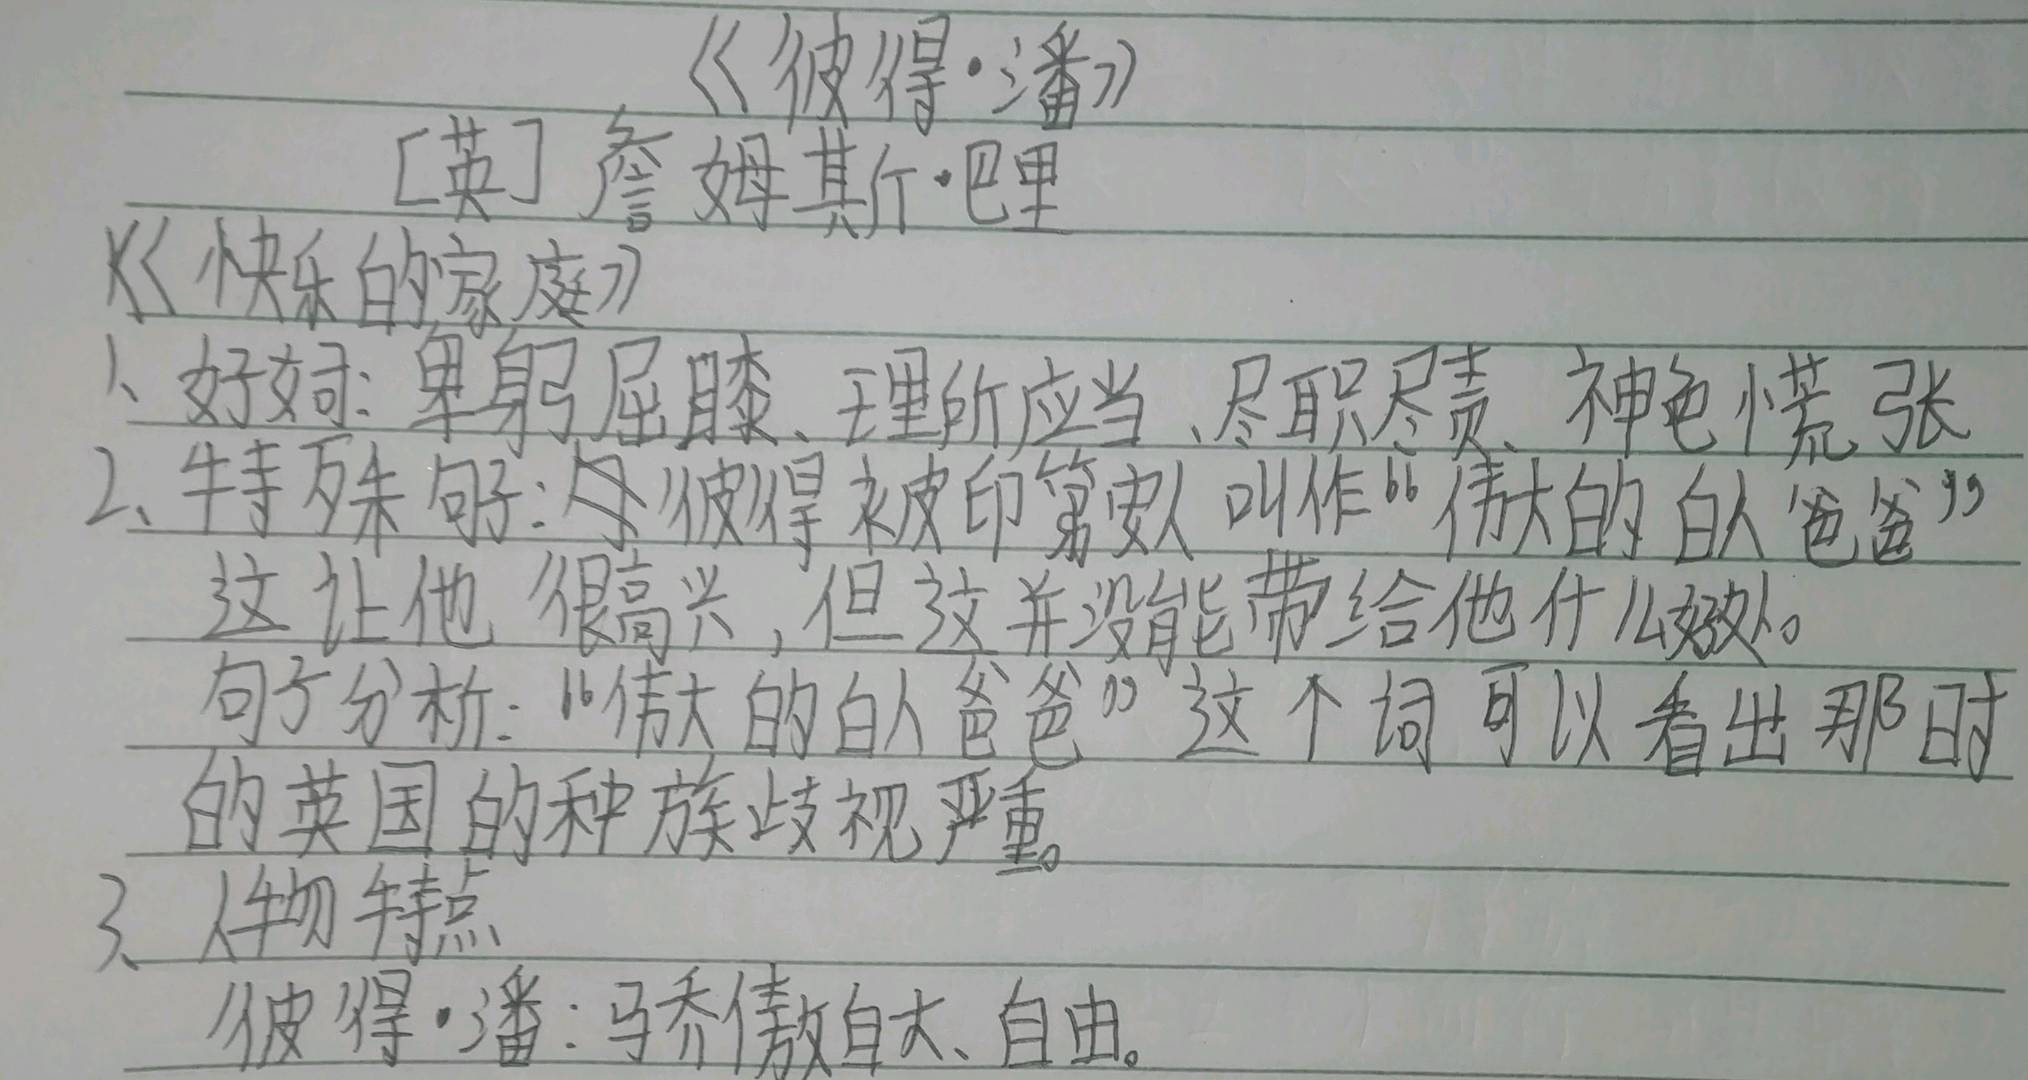 《彼得·潘》
[英] 詹姆斯·巴里
《快乐的家庭》
1、好词:卑躬屈膝、理所应当、尽职尽责、神色慌张
2、特殊句子:今彼得被印第安人叫作“伟大的白人爸爸”
这让他很高兴,但这并没能带给他什么好处。
句子分析:“伟大的白人爸爸”这个词可以看出那时
的英国的种族歧视严重。
3、人物特点
彼得·潘:骄傲自大、自由。